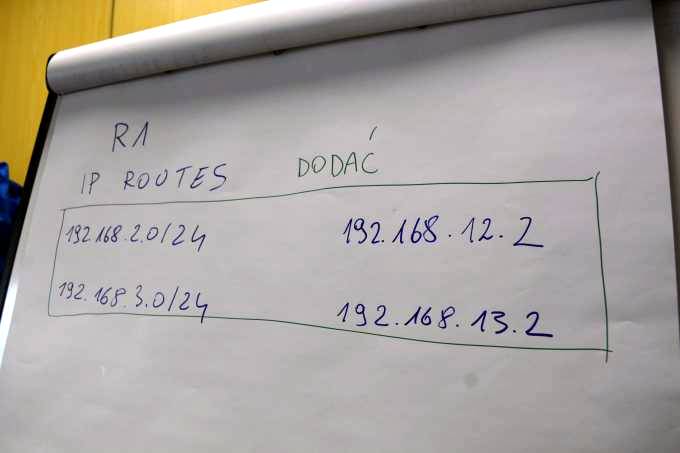 R1
IP ROUTES DODAĆ
192.168.2.0/24 192.168.12.2
192.168.3.0/24 192.168.13.2